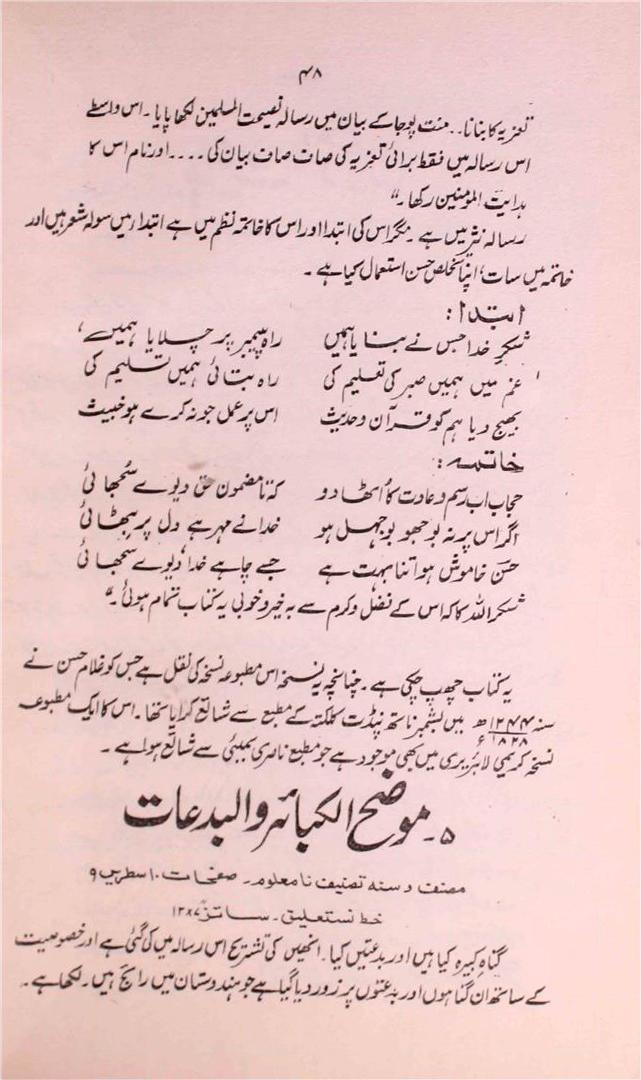 ۴۸
تعزیہ کا بنانا .. مت پوجا کے بیان میں رسالہ نصیحت المسلمین لکھا پایا۔ اس واسطے
اس رسالہ میں فقط برائی تعزیہ کی صاف صاف بیان کی .... اور نام اس کا
ہدایت المومنین رکھا۔"
رسالہ نثر میں ہے۔ مگر اس کی ابتدا اور اس کا خاتمہ نظم میں ہے ابتدا میں سولہ شعر ہیں اور
خاتمہ میں سات، اپنا تخلص حسن استعمال کیا ہے۔
ابتدا:
شکر خدا جس نے بنایا ہمیں راہ پیمبر پر چلایا ہمیں،
غم میں ہمیں صبر کی تعلیم کی راہ بتائی ہمیں تسلیم کی
بھیج دیا ہم کو قرآن و حدیث اس پر عمل جو نہ کرے ہو خبیث
خاتمہ:
حجاب اب رسم و عادت کا اٹھا دو کہ تا مضمون حق دیوے سُجھائی
اگر اس پر نہ بوجھو بوجہل ہو خدا نے مہر ہے دل پر بٹھائی
حسن خاموش ہو اتنا بہت ہے جسے چاہے خدا، دیوے سمجھائی
شکر اللہ کا کہ اس کے فضل و کرم سے بہ خیر و خوبی یہ کتاب تمام ہوئی۔"
یہ کتاب چھپ چکی ہے۔ چنانچہ یہ نسخہ اس مطبوعہ نسخہ کی نقل ہے جس کو غلام حسن نے
سنہ ۱۲۴۴ھ ۱۸۲۸ء میں بشمبر ناتھ پنڈت کلکتہ کے مطبع سے شائع کرایا تھا۔ اس کا ایک مطبوعہ
نسخہ کریمی لائبریری میں بھی موجود ہے جو مطبع ناصری بمبئی سے شائع ہوا ہے۔
۵۔ موضح الکبائر والبدعات
مصنف و سنہ تصنیف نامعلوم۔ صفحات ۱۰ سطریں ۹
خط نستعلیق۔ سائز ۷×۱۲
گناہ کبیرہ کیا ہیں اور بدعتیں کیا۔ انھیں کی تشریح اس رسالہ میں کی گئی ہے اور خصوصیت
کے ساتھ ان گناہوں اور بدعتوں پر زور دیا گیا ہے جو ہندوستان میں رائج ہیں۔ لکھا ہے۔